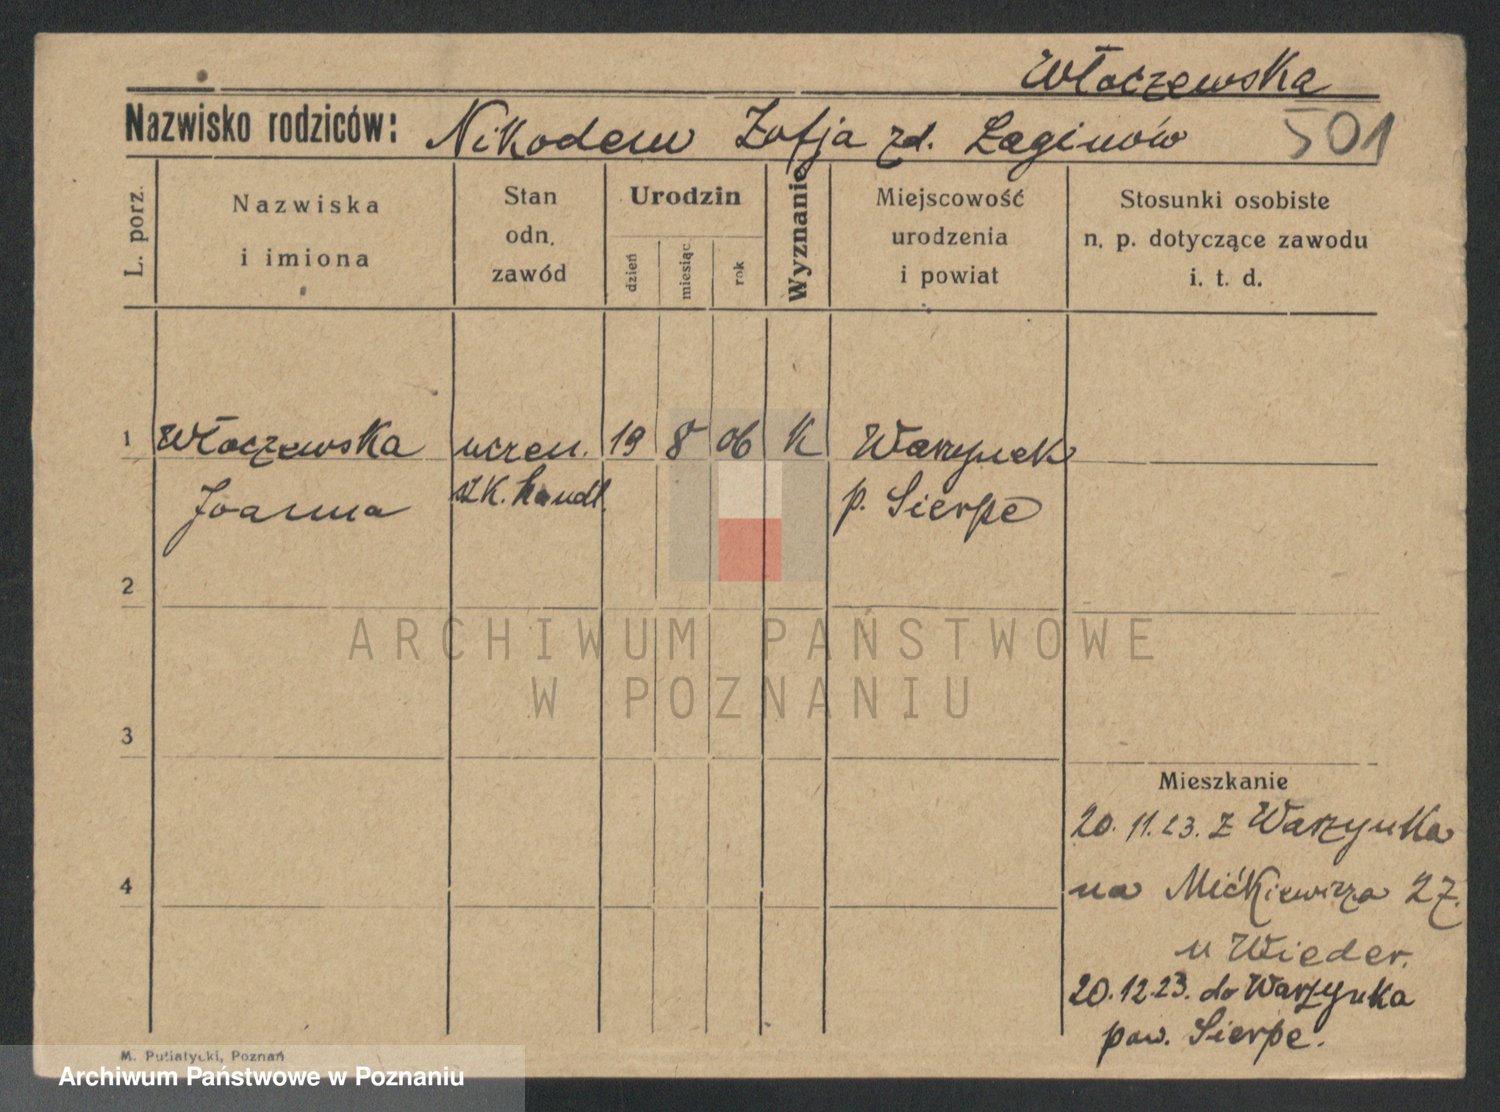 Włoczewska
Nazwisko rodziców: Nikodem Zofja zd. Łaginów 501
L. porz.
Nazwiska
i imiona
Stan
odn.
zawód
Urodzin
dzień
miesiąc
rok
Wyznanie
Miejscowość
urodzenia
i powiat
Stosunki osobiste
n. p. dotyczące zawodu
i. t. d.
1 Włoczewska uczen. 19 8 06 K Warzynek
Joanna szk. handl. p. Sierpc
2
ARCHIWUM PAŃSTWOWE
W POZNANIU
3
Mieszkanie
20.11.23. z Warzynka
4
na Mićkiewicza 27.
u Wieder.
20.12.23. do Warzynka
pow. Sierpc.
M. Putiatycki, Poznań
Archiwum Państwowe w Poznaniu